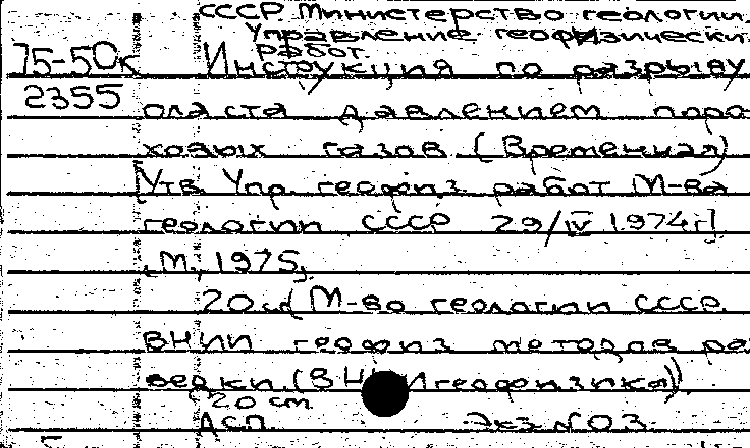 СССР. Министерство геологии.
Управление геофизически
работ.
75-50к Инструкция по разрыву
2355 пласта давлением поро-
ховых газов (Временная)
[Утв. Упр. геофиз. работ М-ва
геологии СССР 29/IV 1974г].
М., 1975.
20 см (М-во геологии СССР.
ВНИИ геофиз. методов раз
ведки. (ВНИИгеофизика))
20 см
ДСП. Экз N 03